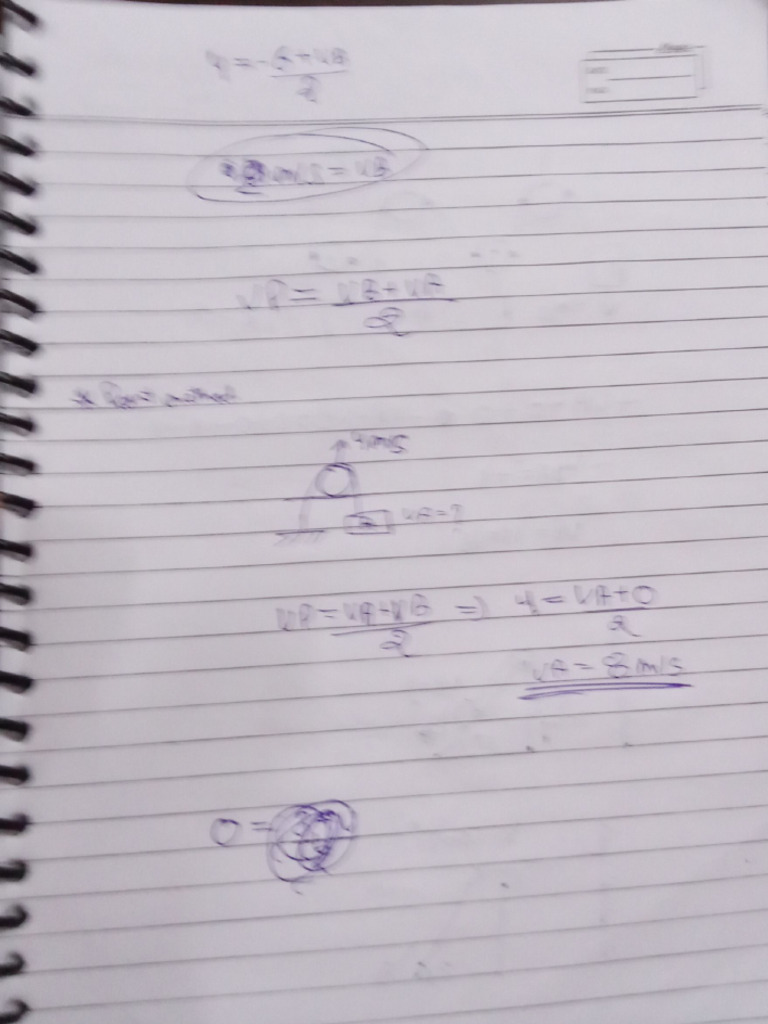 4 = -6 + VB
2
m/s = VB
VP = VB + VA
2
method
4m/s
VA = ?
VP = VA + VB ⇒ 4 = VA + 0
2 2
VA = 8 m/s
0 =